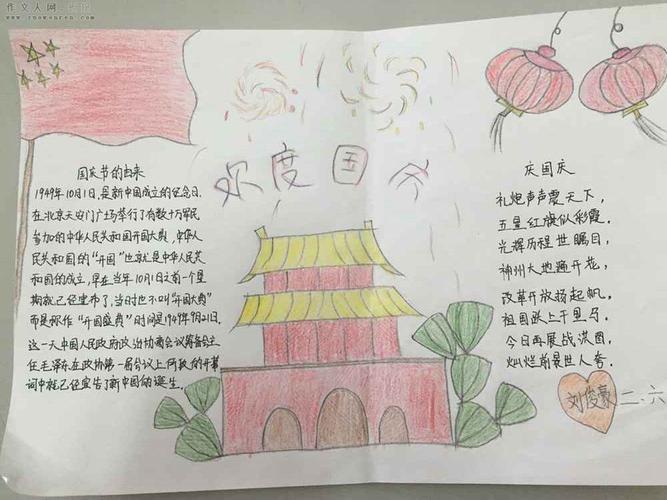 作文人网
www.zuowenren.com
欢度国
国庆节的由来
1949年10月1日,是新中国成立的纪念日.
在北京天安门广场举行了有数十万军民
参加的中华人民共和国开国大典,中华人
民共和国的“开国”也就是中华人民共
和国的成立,早在当年10月1日之前一个星
期就已经宣布了,当时也不叫“开国大典”
而是称作“开国盛典”时间是1949年9月21日.
这一天中国人民政府政治协商会议筹备会主
任毛泽东在政协第一届会议上所致的开幕
词中就已经宣告了新中国的诞生.
庆国庆
礼炮声声震天下,
五星红旗似彩霞.
光辉历程世瞩目,
神州大地遍开花,
改革开放扬起帆,
祖国跃上千里马,
今日再展战洪图,
灿烂前景世人夸.
刘俊豪
二、六